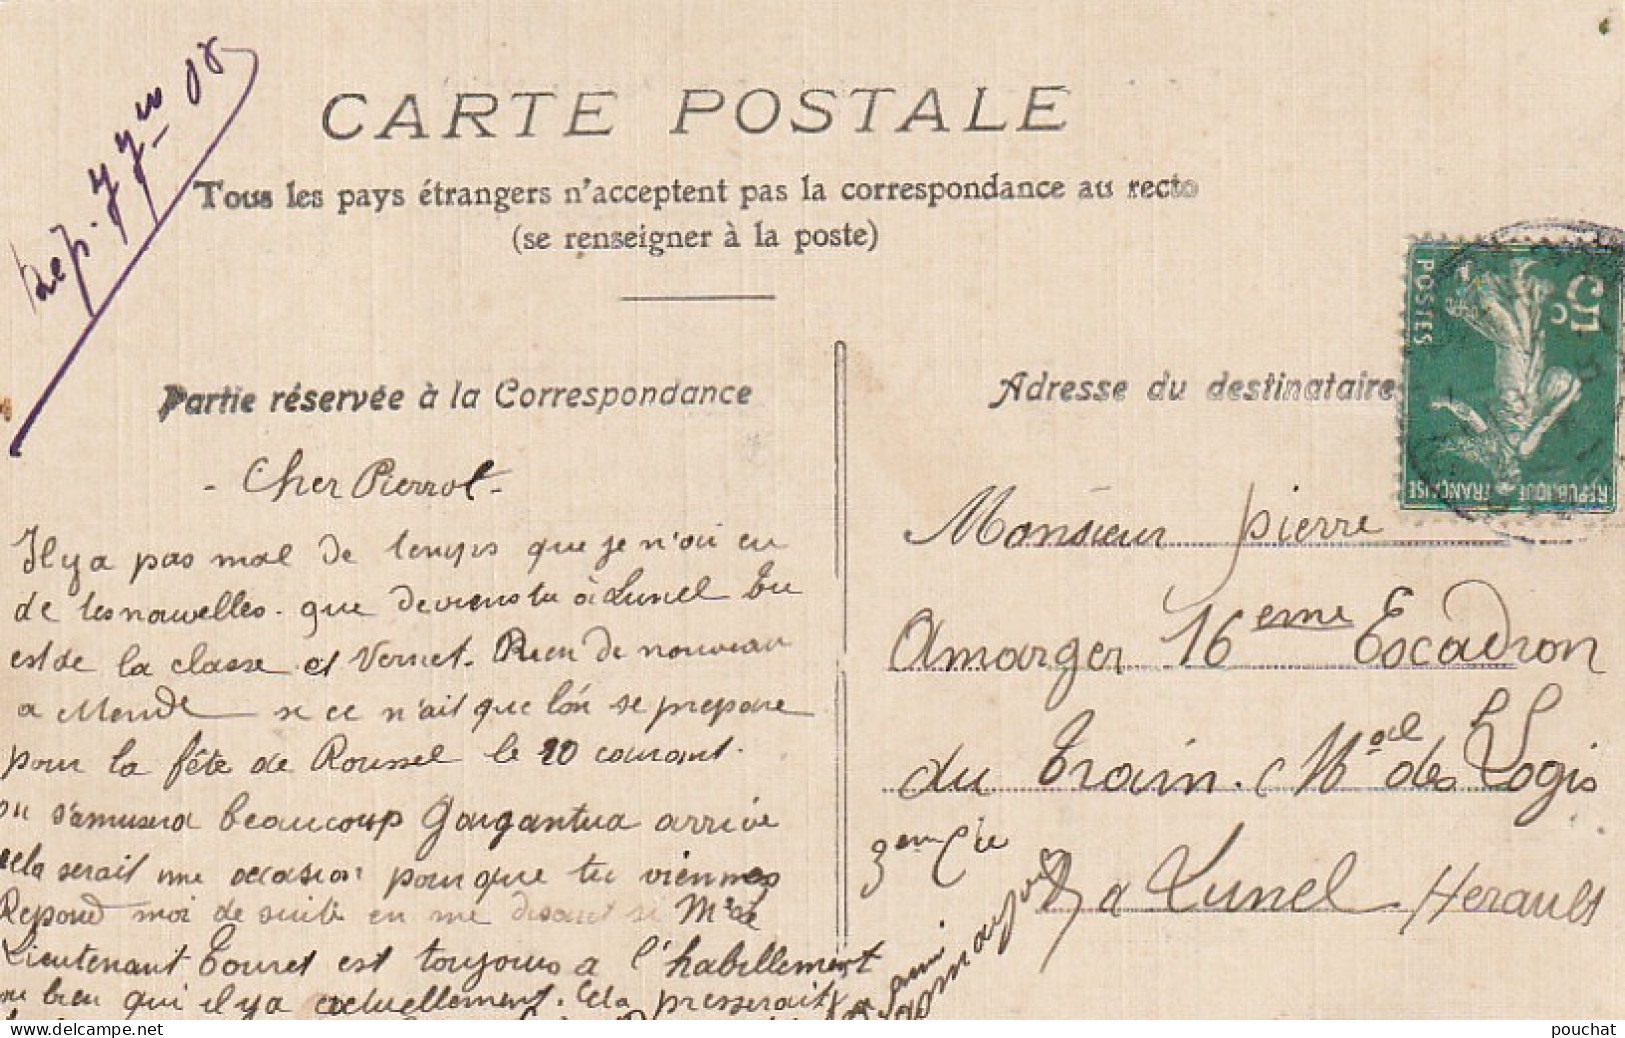 Rep. 77bre 08
CARTE POSTALE
Tous les pays étrangers n'acceptent pas la correspondance au recto
(se renseigner à la poste)
Partie réservée à la Correspondance
- Cher Pierrot -
Il y a pas mal de temps que je n'ai eu
de tes nouvelles. que deviens tu à Lunel Tu
est de la classe et Vernet. Rien de nouveau
a Mende si ce n'ait que l'on se prepare
pour la fête de Roussel le 20 courant.
on s'amusera beaucoup Gargantua arrive
cela serait une occasion pour que tu viennes
Repond moi de suite en me disant si Mr le
Lieutenant Touret est toujours a l'habillement
ou bien qui il y a actuellement. Cela presserait
ami
Adresse du destinataire
5c
POSTES
REPUBLIQUE FRANÇAISE
Monsieur Pierre
Amarger 16eme Escadron
du Train. Mal des Logis
3em Cie
a Lunel Herault
pouchat